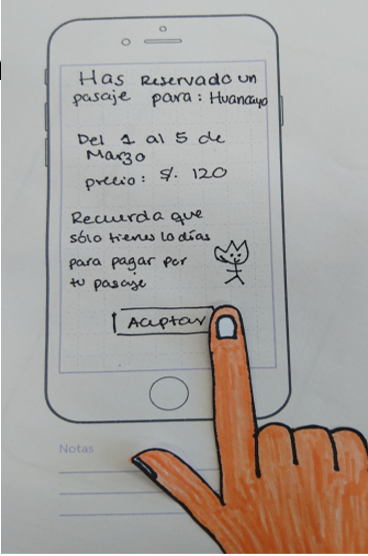 Has Reservado un
pasaje para: Huancayo
Del 1 al 5 de
Marzo
precio: S/. 120
Recuerda que
sólo tienes 10 días
para pagar por
tu pasaje
Aceptar
Notas